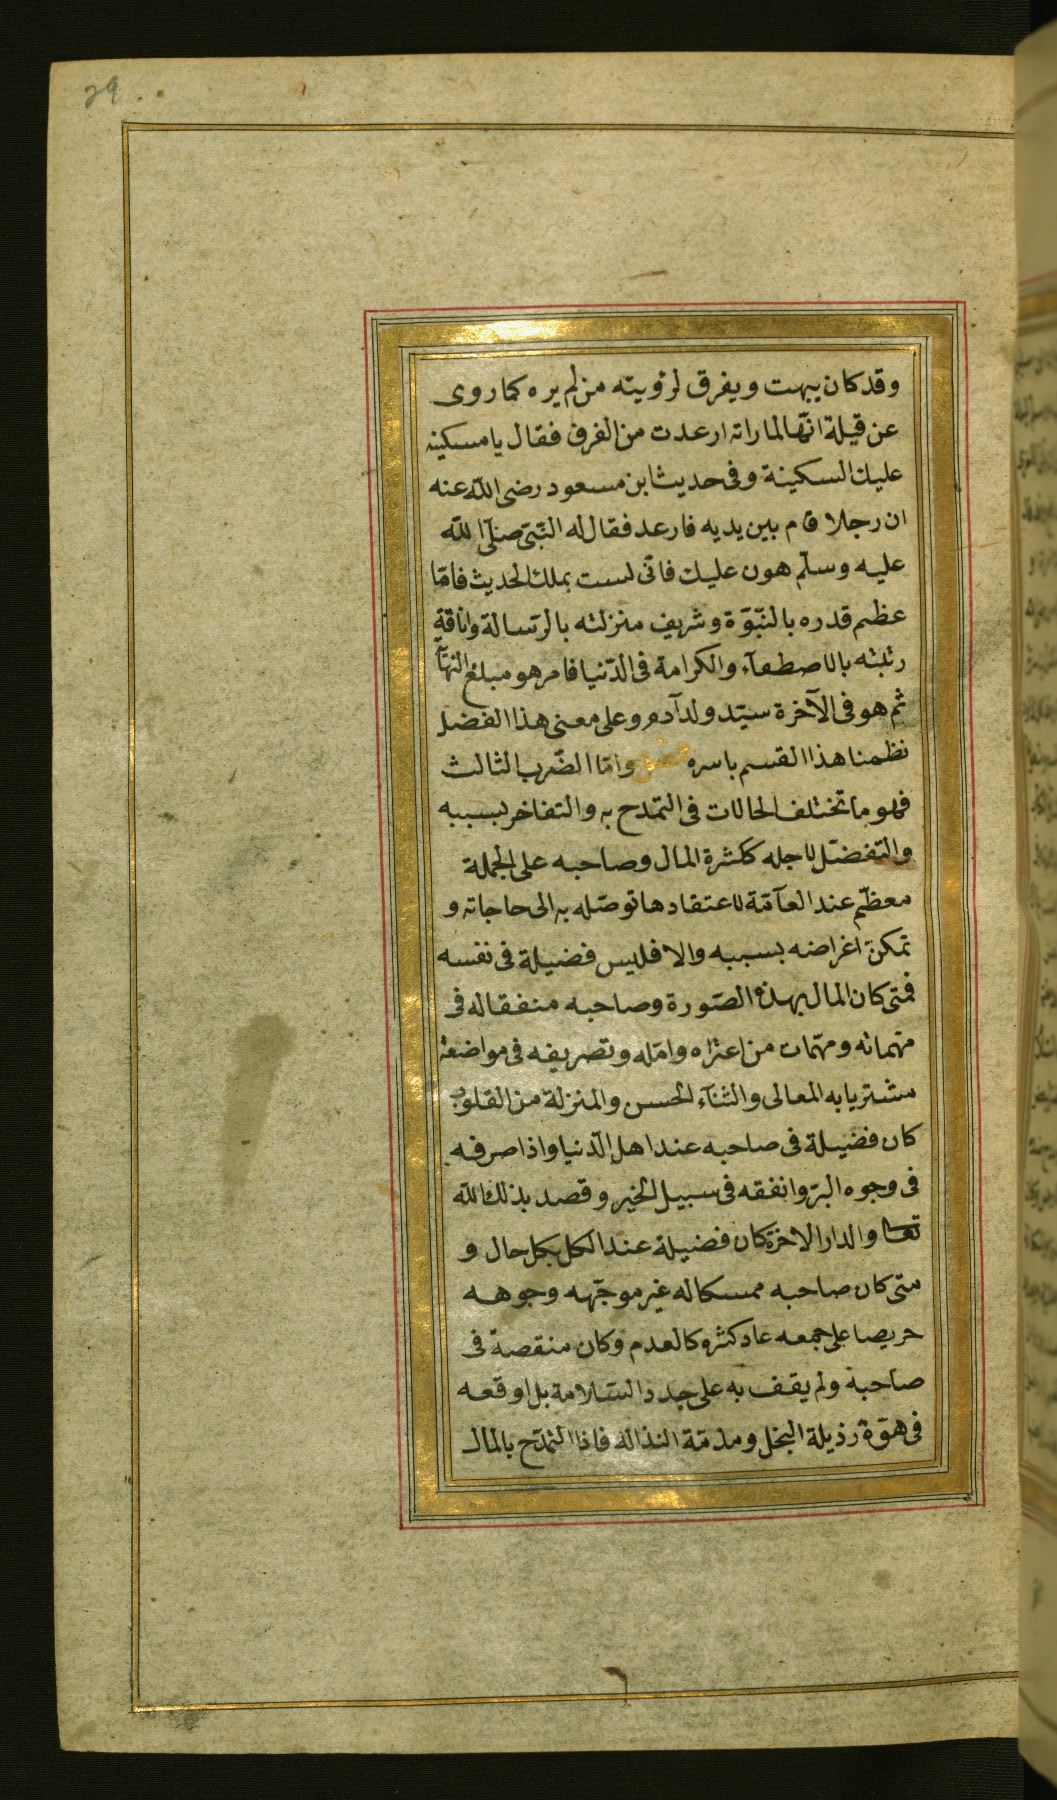 29
وقد كان يبهت ويفرق لرؤيته من لم يره كما روى
عن قيلة انّها لما راته ارعدت من الفرق فقال يا مسكينه
عليك السكينة وفى حديث ابن مسعود رضى الله عنه
ان رجلا قام بين يديه فارعد فقال له النّبىّ صلّى الله
عليه وسلّم هون عليك فانى لست بملك الحديث فامّا
عظيم قدره بالنبّوّة وشريف منزلته بالرّسالة وانافة
رتبته بالاصطفآء والكرامة فى الدّنيا فامر هو مبلغ النهآ
ثم هو فى الآخرة سيّد ولد آدم وعلى معنى هذا الفضل
نظمنا هذا القسم باسره فصل وامّا الضّرب الثالث
فهو ما تختلف الحالات فى التمدح به والتفاخر بسببه
والتفضّل لاجله ككثرة المال وصاحبه على الجملة
معظّم عند العآمّة لاعتقادها توصّله به الى حاجاته و
تمكن اغراضه بسببه والا فليس فضيلة فى نفسه
فمتى كان المال بهذه الصّورة وصاحبه منفقا له فى
مهماته ومهمّات من اعتراه وامّله وتصريفه فى مواضعه
مشتريا به المعالى والثنآء الحسن والمنزلة من القلوب
كان فضيلة فى صاحبه عند اهل الدّنيا واذا صرفه
فى وجوه البرّ وانفقه فى سبيل الخير وقصد بذلك الله
تعا والدار الاخرة كان فضيلة عند الكل بكل حال و
متى كان صاحبه ممسكا له غير موجّهه وجوهه
حريصا على جمعه عاد كثره كالعدم وكان منقصة فى
صاحبه ولم يقف به على جدد السّلامة بل اوقعه
فى هوّة رذيلة البخل ومذمّة النذالة فاذا التمدّح بالمال